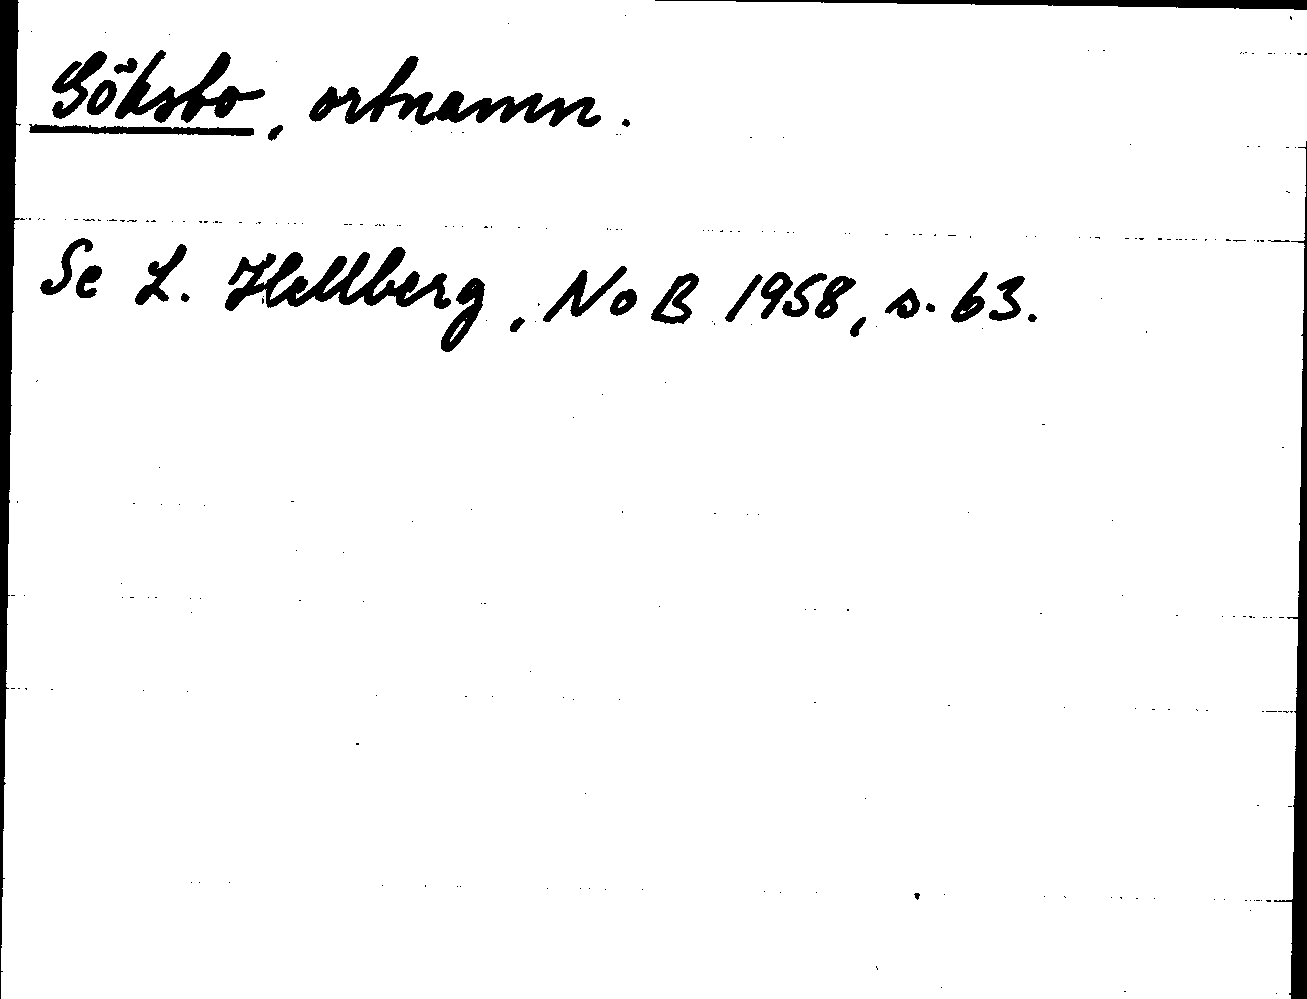 Göksbo, ortnamn.
Se L. Hellberg, NoB 1958, s. 63.